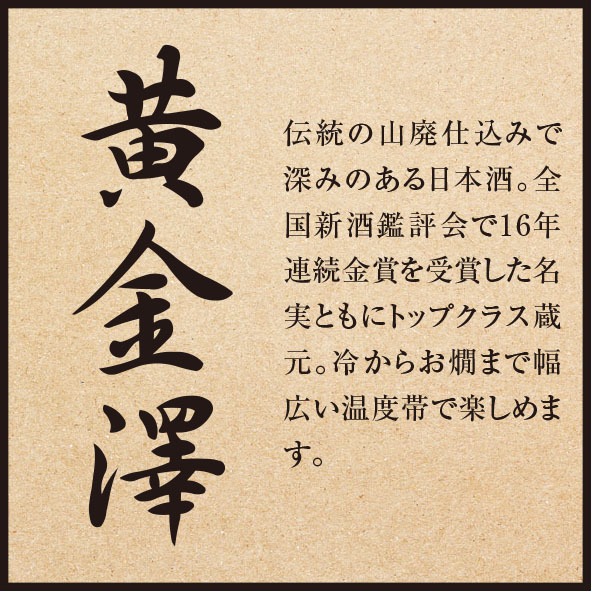 黄金澤
伝統の山廃仕込みで
深みのある日本酒。全
国新酒鑑評会で16年
連続金賞を受賞した名
実ともにトップクラス蔵
元。冷からお燗まで幅
広い温度帯で楽しめま
す。